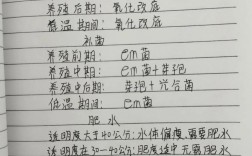 养殖后期：氧化改底
低温期间：氧化改底
补菌
养殖前期：em菌
养殖中期：em菌+芽孢
养殖后期：芽孢+光合菌
低温期间：em菌
肥水
透明度大于40公分：水体偏瘦，需要肥水
透明度在30—40公分：肥度适中无需肥水